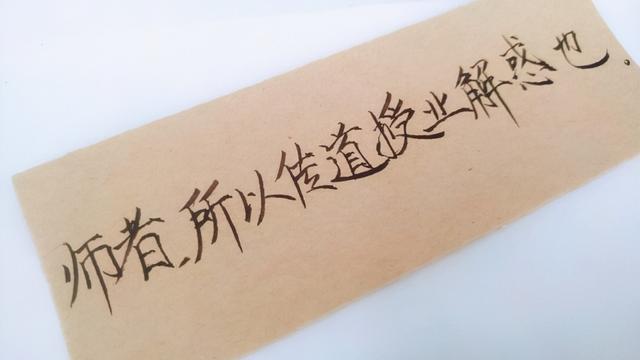 师者、所以传道授业解惑也.